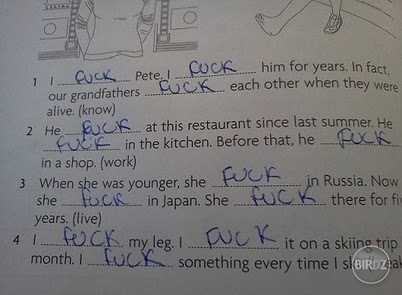 1 I FUCK Pete. I FUCK him for years. In fact,
our grandfathers FUCK each other when they were
alive. (know)
2 He FUCK at this restaurant since last summer. He
FUCK in the kitchen. Before that, he FUCK
in a shop. (work)
3 When she was younger, she FUCK in Russia. Now
she FUCK in Japan. She FUCK there for fi
years. (live)
4 I FUCK my leg. I FUCK it on a skiing trip
month. I FUCK something every time I
BIRDZ